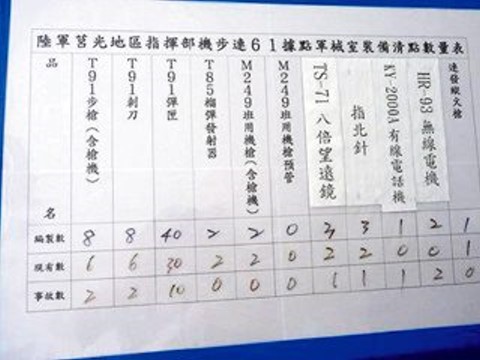 陸軍莒光地區指揮部機步連61據點軍械室裝備清點數量表
品名
T91步槍(含槍機)
T91刺刀
T91彈匣
T85榴彈發射器
M249班用機槍(含槍機)
M249班用機槍預管
TS-71八倍望遠鏡
指北針
KY-2000A有線電話機
HR-93無線電機
連發縱火槍
編製數 8 8 40 2 2 0 3 3 1 2 1
現有數 6 6 30 2 2 0 2 2 0 0 1
事故數 2 2 10 0 0 0 1 1 1 2 0